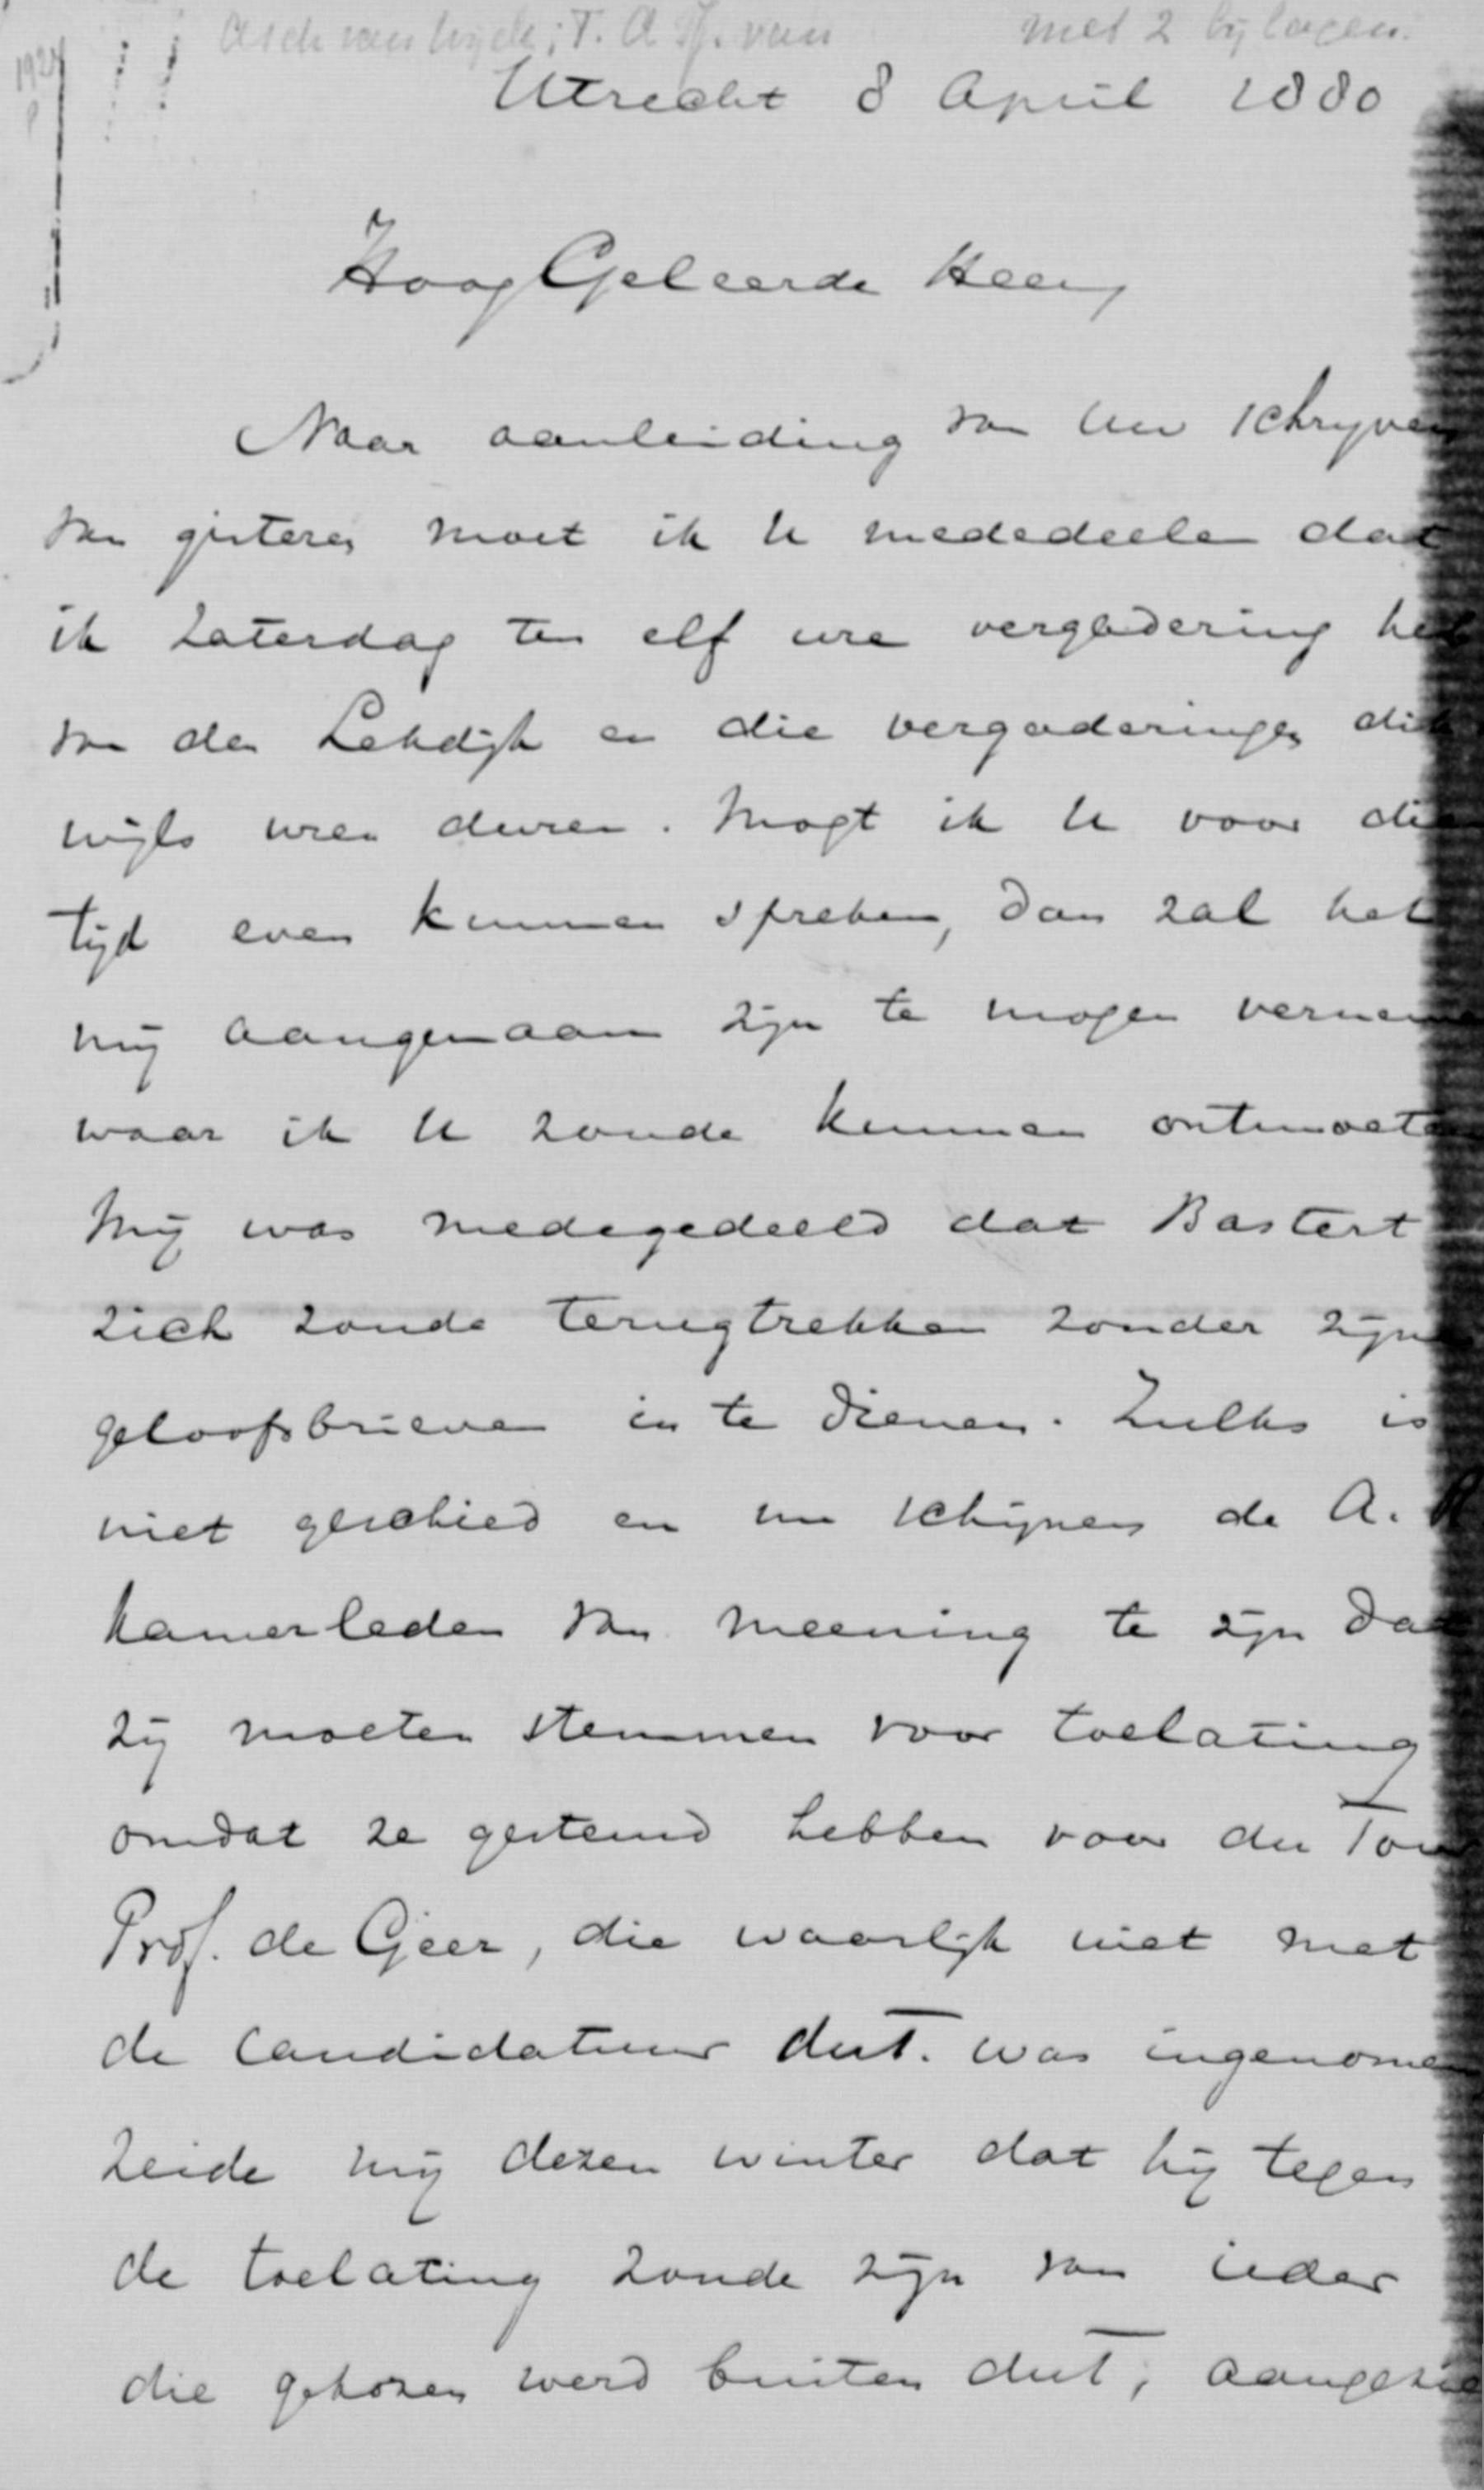 Asch van Wijck; T. A. J. van met 2 bylagen.
Utrecht 8 April 1880
HoogGeleerde Heer,
Naar aanleiding van Uw schryven
van gisteren moet ik U mededeelen dat
ik Zaterdag ten elf ure vergadering heb
van den Lekdijk en die vergaderingen dik
wijls uren duren. Mogt ik U voor die
tijd even kunnen spreken, dan zal het
mij aangenaam zijn te mogen vernemen
waar ik U zoude kunnen ontmoeten
Mij was medegedeeld dat Bastert
zich zoude terugtrekken zonder zijne
geloofsbrieven in te dienen. Zulks is
niet geschied en nu schijnen de A. R
Kamerleden van meening te zijn dat
zij moeten stemmen voor toelating
omdat ze gestemd hebben voor du Tour
Prof. de Geer, die waarlijk niet met
de Candidatuur du T. was ingenomen
zeide mij dezen winter dat hij tegen
de toelating zoude zijn van ieder
die gekozen werd buiten du T; aangezie